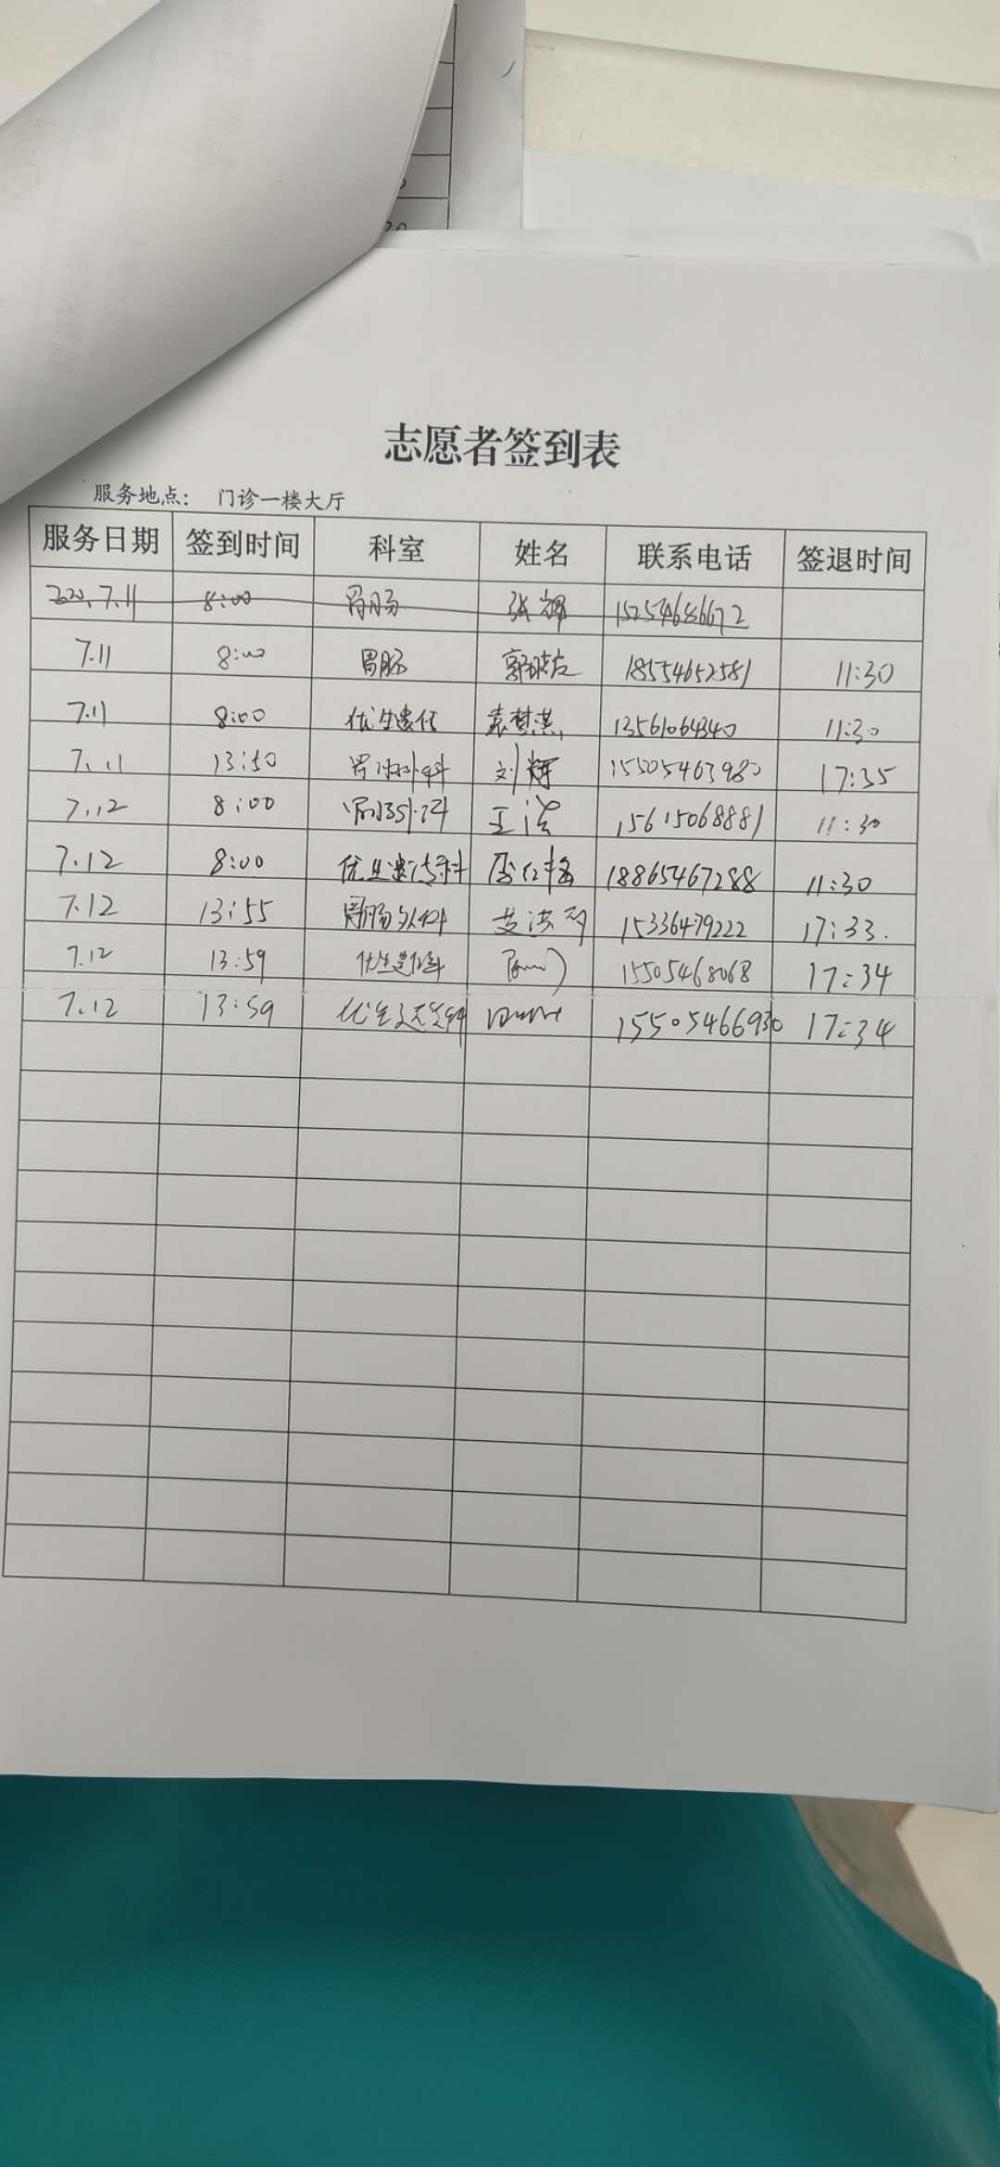 志愿者签到表
服务地点： 门诊一楼大厅
服务日期 签到时间 科室 姓名 联系电话 签退时间
7.11 8:00 胃肠 15254686672
7.11 8:00 胃肠 18554652581 11:30
7.11 8:00 优生遗传 13561064340 11:30
7.11 13:50 刘辉 15505463980 17:35
7.12 8:00 王浩 15615068881 11:30
7.12 8:00 优生遗传科 18865467288 11:30
7.12 13:55 胃肠外科 15336479222 17:33.
7.12 13:59 15505468068 17:34
7.12 13:59 15505466930 17:34